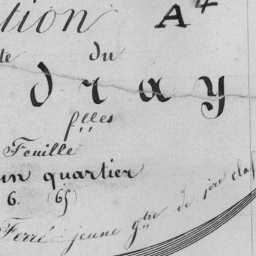 tion A4
de du
dray
flles
Feuille
un quartier
6. (6)
Ferré jeune gtre de 1ère clas